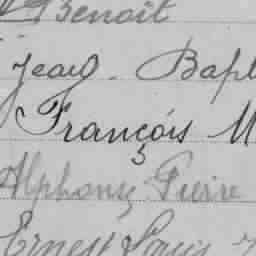 Benoit
Jean - Bapt
François M
Alphonse Pierre
Ernest Louis